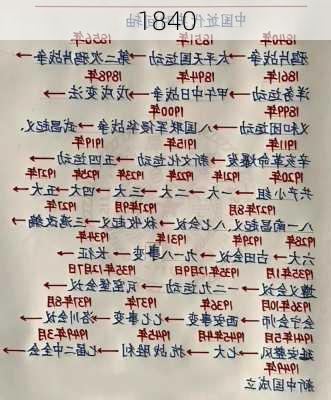 1840
中国近代
1840年 1851年 1856年
鸦片战争→太平天国运动→第二次鸦片战争→
1861年 1894年 1898年
洋务运动→甲午中日战争→戊戌变法→
1899年 1900年
义和团运动→八国联军侵华战争→武昌起义.
1911年 1915年 1919年
辛亥革命爆发→新文化运动→五四运动→
1920年 1921年 1922年 1923年 1925年 1927年
共产小组→一大→二大→三大→四大→五大→
1927年8月 1927年9月
八一南昌起义→八七会议→秋收起义→三湾改编→
1928年 1929年 1931年 1934年
六大→古田会议→九一八事变→长征→
1935年1月 1935年12月9日 1935年12月7日
遵义会议→一二九运动→瓦窑堡会议→
1936年10月 1936年 1937年 1937年8月
会宁会师→西安事变→七七事变→洛川会议→
1941年5月 1945年4月 1945年 1949年3月
延安整风→七大→抗战胜利→七届二中全会→
1949年
新中国成立